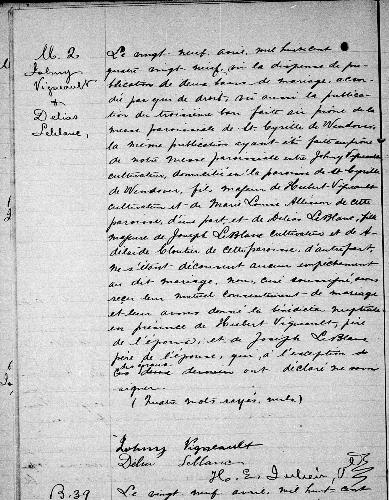 M. 2
Johny
Vigneault
&
Delias
Leblanc,
Le vingt neuf avril, mil huit cent
quatre vingt-neuf, vu la dispense de pu-
blication de deux bans de mariage, accor-
dée par qui de droit, vu aussi la publication
du troisième ban faite au prône de la
messe paroissiale de St Cyrille de Wendover,
la même publication ayant été faite au prône
de notre messe paroissiale entre Johny Vigneault
cultivateur, domicilié en la paroisse de St Cyrille
de Wendover, fils majeur de Hubert Vigneault
cultivateur et de Marie Louise de cette
paroisse, d'une part, et de Delias LeBlanc, fille
majeure de Joseph LeBlanc cultivateur et de A-
délaide Cloutier de cette paroisse, d'autre part,
ne s'étant découvert aucun empêchement
au dit mariage, nous, curé soussigné, avons
reçu leur mutuel consentement de mariage
et leur avons donné la bénédiction nuptiale
en présence de Hubert Vigneault, père
de l'époux, et de Joseph LeBlanc
père de l'épouse, qui, à l'exception de
des époux
ont déclaré ne savoir
signer.
( mots rayés, nuls)
Johny Vigneault
Délia Leblanc
H. E. Julien, Ptre
B. 39
Le vingt neuf avril, mil huit cent